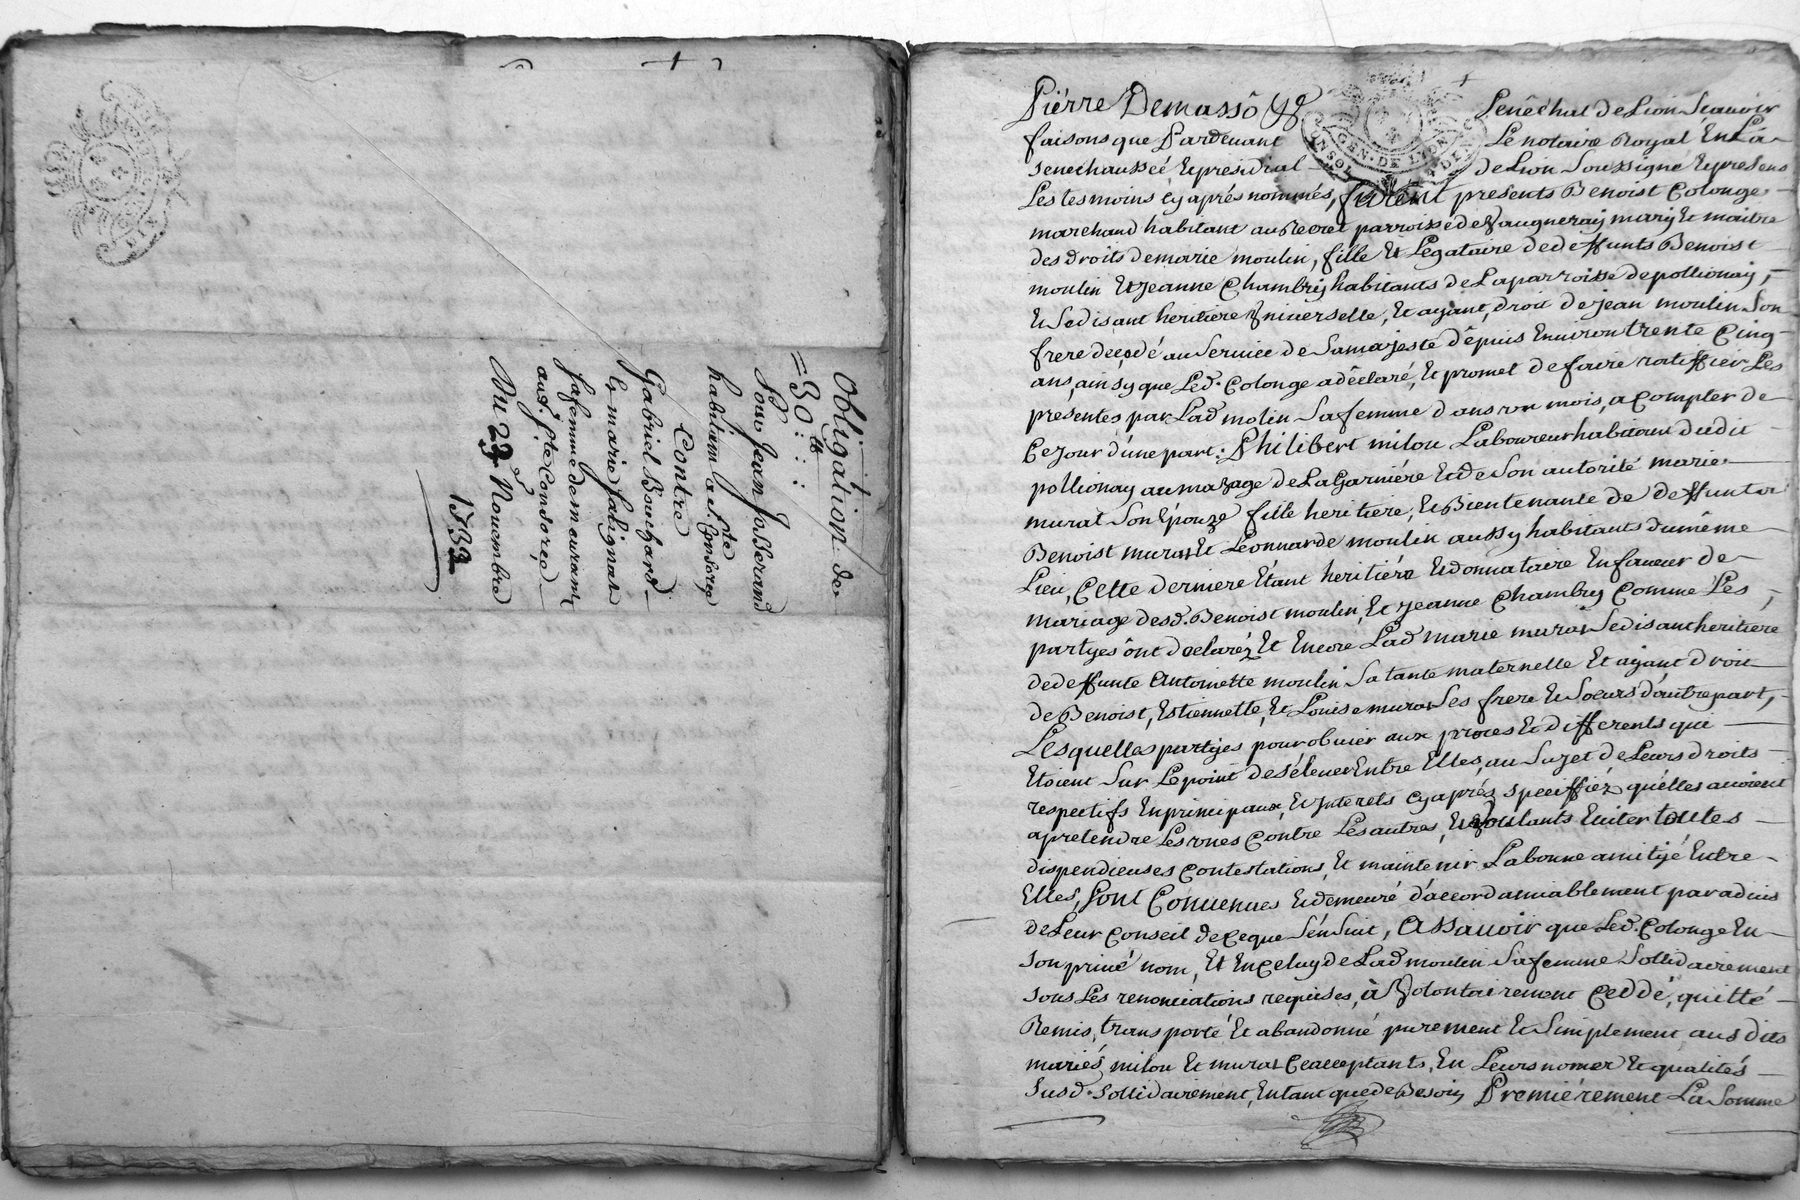 Obligation de
=30ᵗᵗ : : :
Pour Jean Josserand
habitant a ste Consorce
Contre
Gabriel Bouchard
Et marie falignat
Sa femme demeurant
aud. ste Consorce
Du 23e Nouembre
1732
GEN. DE LYON
Pierre Demassô &c Senêchal de Lion Scauoir
faisons que Pardeuant Le notaire Royal En La
Senechaussée Et presidial de Lion Soussigné Et presens
Les tesmoins cy aprés nommés, furent presents Benoist Colonge
marchand habitant au Recret parroisse de Vaugneray mary Et maitre
des droits de marie moulin, fille Et Legataire de deffunts Benoist
moulin Et Jeanne Chambry habitants de La parroisse de pollionay,
Et Se disant heritiere Vniuerselle, Et ayant droit de Jean moulin Son
frere decedé au Seruice de Sa majesté dêpuis Enuiron trente Cinq
ans, ainsy que Led. Colonge a dêclaré, Et promet de faire ratiffier Les
presentes par Lad molin Sa femme dans vn mois, a Compter de
Ce Jour d'une part; Philibert milou Laboureur habitant dudit
pollionay au mazage de La Garniére Et de Son autorité marie
murat Son Epouze fille heritiere, Et Bientenante de deffunts
Benoist murat Et Leonnarde moulin aussy habitants du même
Lieu, Cette derniere Etant heritiére Et donnataire En faueur de
mariage desd. Benoist moulin, Et Jeanne Chambry Comme Les
partyes ônt declaréz Et Encore Lad marie murat Se disant heritiere
de deffunte Antoinette moulin Sa tante maternelle Et ayant droit
de Benoist, Estiennette, Et Louise murat Ses frere Et Soeurs d'autre part,
Lesquelles partyes pour obuier aux proces Et differents qui
Etoient Sur Le point de s'éleuer Entre Elles, au Sujet de Leurs droits
respectifs En principaux, Et Interets cy aprés speciffiéz qu'elles auoient
a pretendre Les vnes Contre Les autres, Et Voulants Euiter toutes
dispendieuses Contestations, Et maintenir La bonne amitié Entre
Elles, Sont Conuenues Et demeuré d'accord amiablement par aduis
de Leur Conseil de Ce que S'en Suit, Assauoir que Led. Colonge En
Son priué nom, Et En Celuy de Lad moulin Sa femme Sollidairement
Sous Les renonciations requises, à Volontairement Ceddé, quitté
Remis, transporté Et abandonné purement Et Simplement aus dits
mariés milou Et murat Ce acceptants, En Leurs noms Et qualités
Susd. Sollidairement, En tant que de Besoin Premiérement La Somme